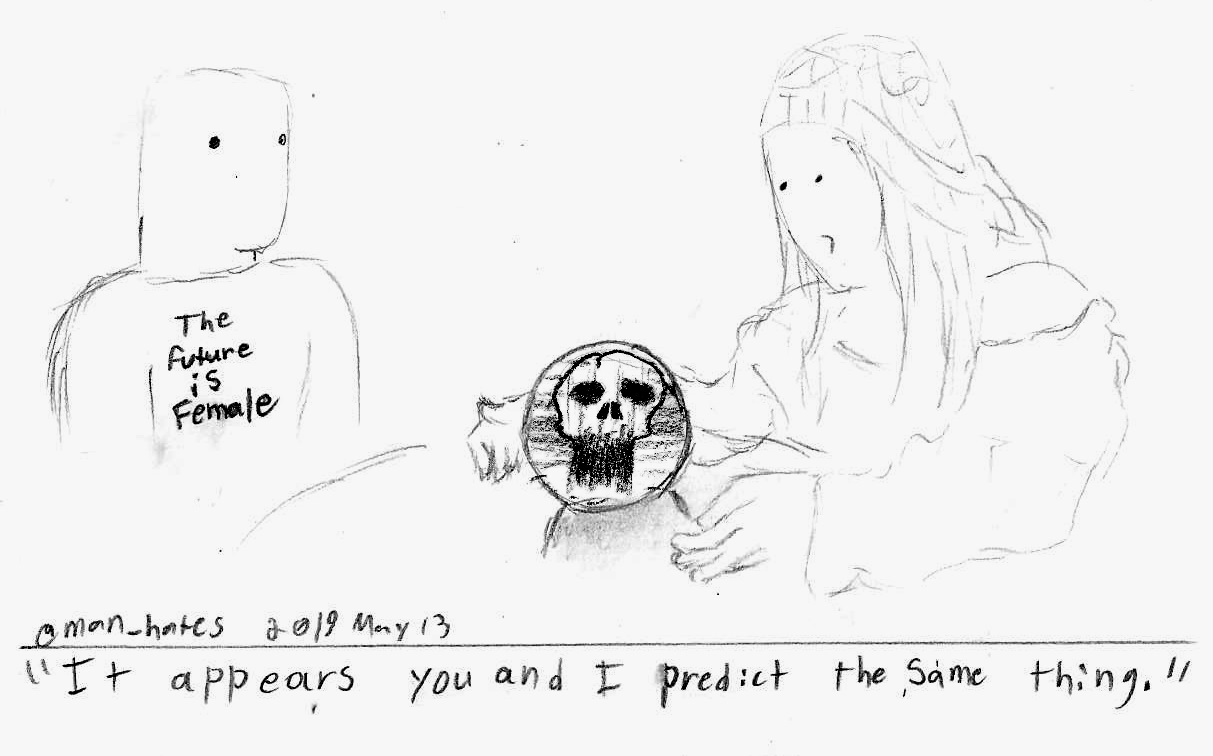 The
future
is
Female
@man_hates 2019 May 13
"It appears you and I predict the same thing."